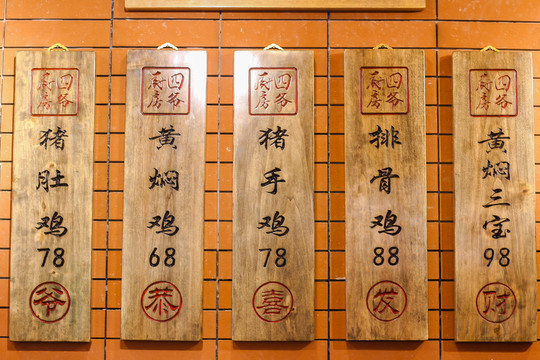 四爷厨房
猪肚鸡
78
爷
四爷厨房
黄焖鸡
68
恭
四爷厨房
猪手鸡
78
喜
四爷厨房
排骨鸡
88
发
四爷厨房
黄焖三宝
98
财